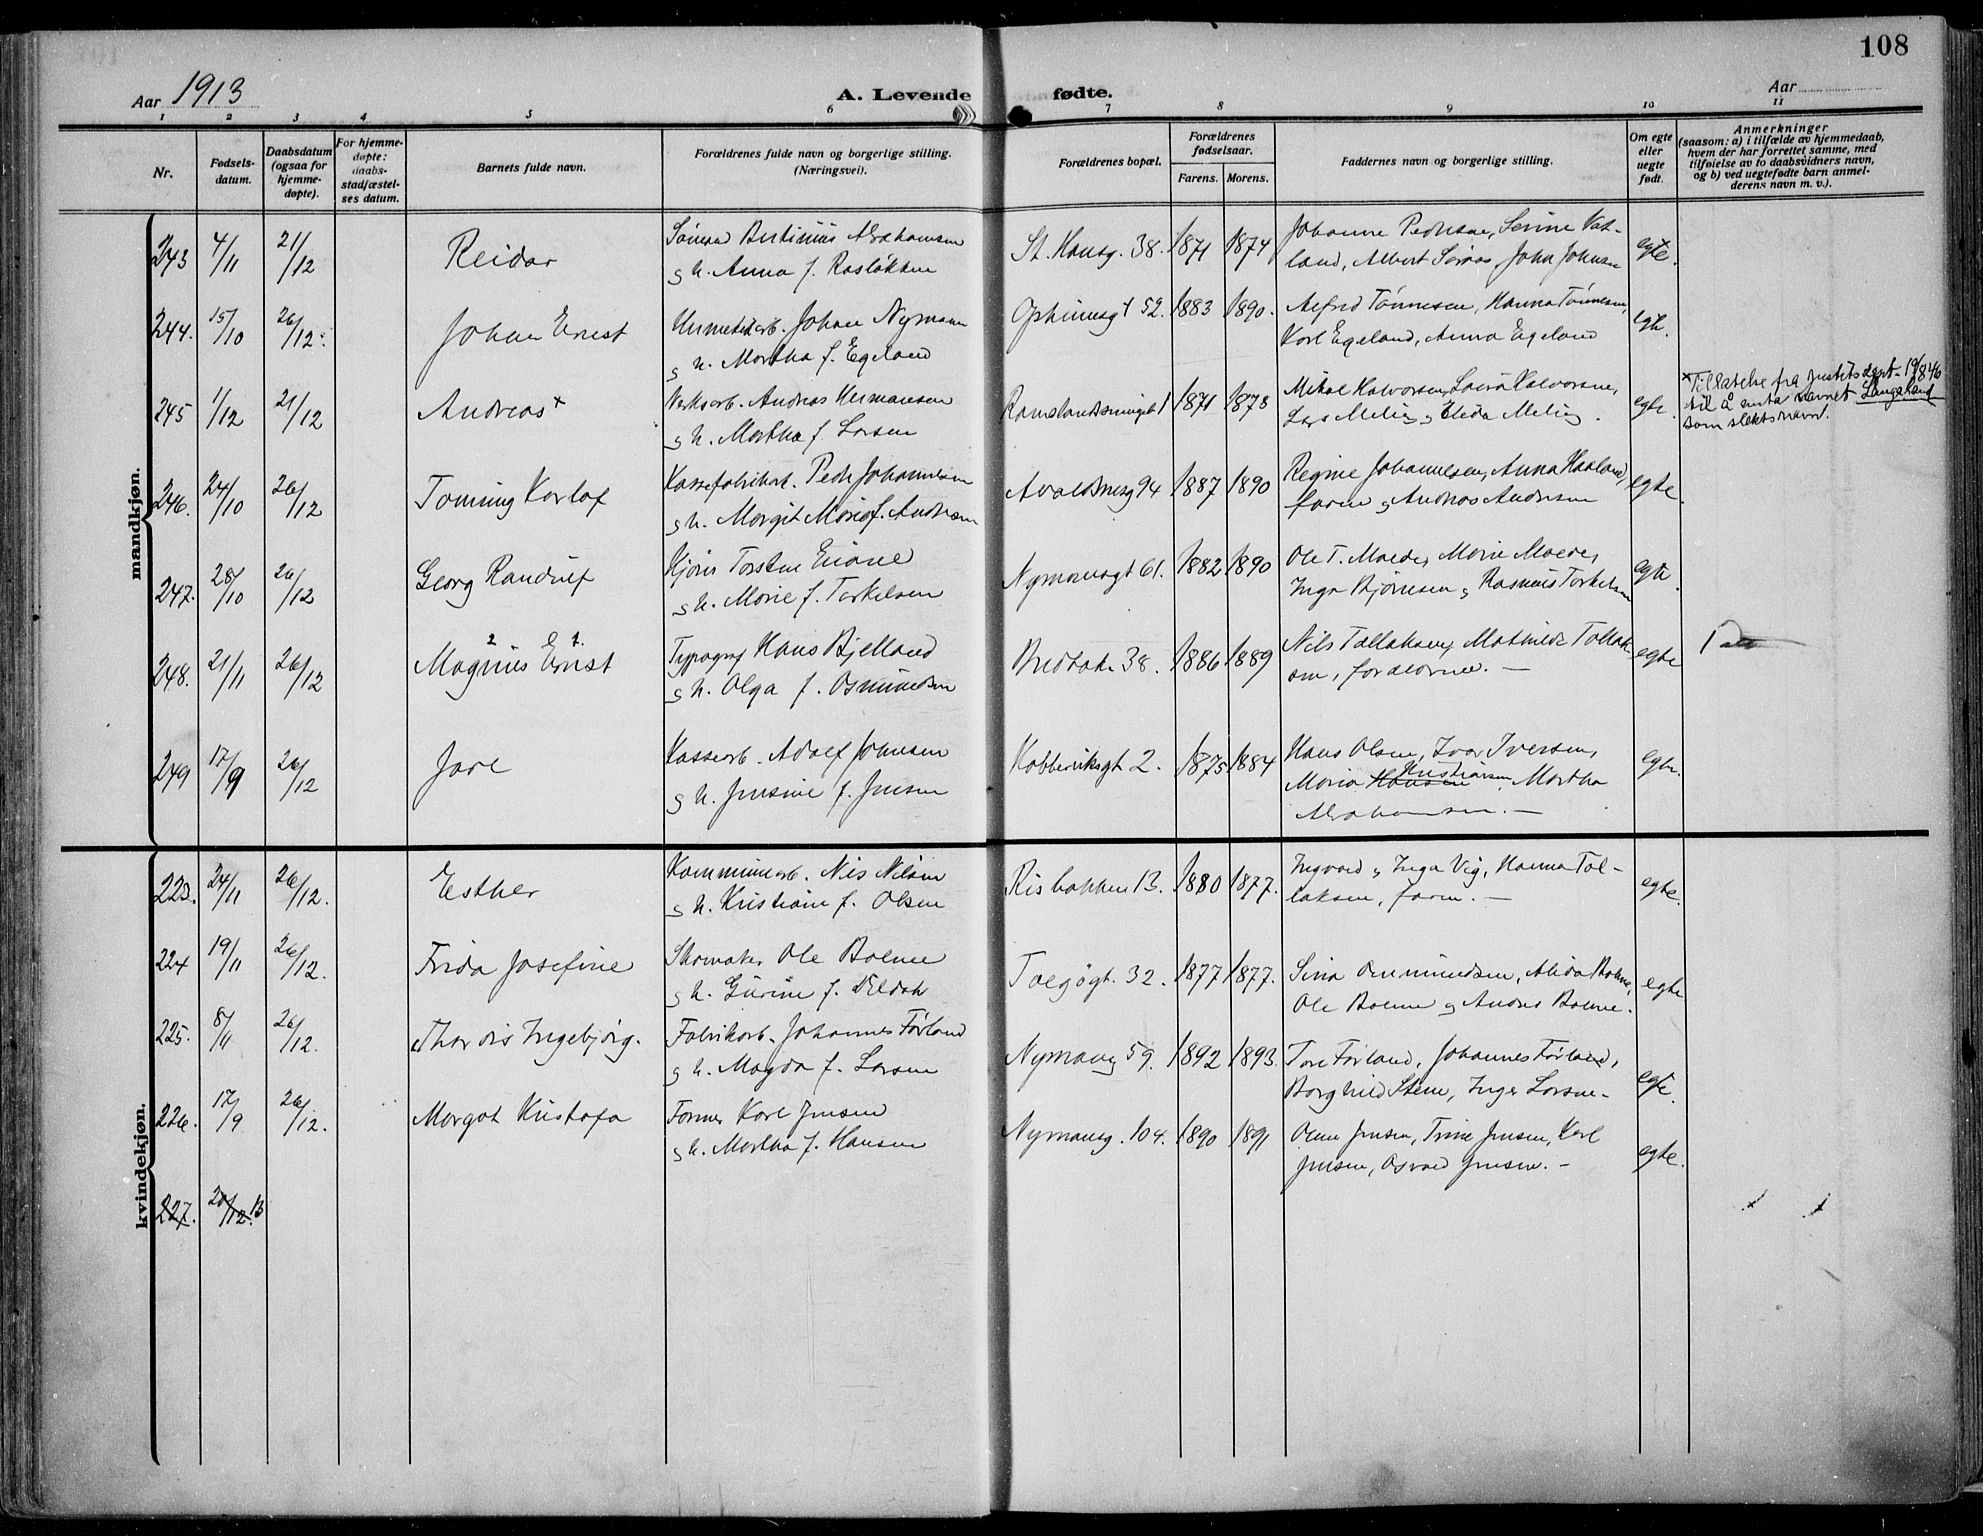 108
Aar 1913
A. Levende fødte.
Aar
1 2 3 4 5 6 7 8 9 10 11
Nr.
Fødsels-
datum.
Daabsdatum
(ogsaa for
hjemme-
døpte).
For hjemme-
døpte:
daabs-
stadfæstel-
ses datum.
Barnets fulde navn.
Forældrenes fulde navn og borgerlige stilling.
(Næringsvei).
Forældrenes bopæl.
Forældrenes
fødselsaar.
Farens. Morens.
Faddernes navn og borgerlige stilling.
Om egte
eller
uegte
født.
Anmerkninger
(saasom: a) i tilfælde av hjemmedaab,
hvem der har forrettet samme, med
tilføielse av to daabsvidners navn,
og b) ved uegtefødte barn anmel-
derens navn m. v.).
mandkjøn.
243 4/11 21/12 Reidar
Abrahamsen
g h. Anna f. Rasløkken
St. Hansg. 38. 1871 1874
Johanne Pedersen, Serine Vat-
land, Albert John Johnsen
egte.
244. 15/10 26/12 Johan Ernst
Hermetikarb. Johan Nymann
g h. Martha f. Egeland
52. 1883 1890.
Alfred Tønnesen, Hanna Tønnesen,
Karl Egeland, Anna Egeland
egte.
245 1/12 21/12 Andreas x
Verksarb. Andreas Hermansen
g h. Martha f. Larsen
1 1871 1878
Mikal Halvorsen, Laura Halvorsen,
Lars Meling g Elida Meling.
egte.
x Tillatelse fra Justitsdept. 19/8 46
til å anta navnet Langeland
som slektsnavn.
246. 24/10 26/12 Tonning Karlof
Kassefabrikarb. Peder Johannesen
g h. Margit Marie f. Andersen
Avaldsnesg 94 1887 1890
Regine Johannesen, Anna Haaland,
faren g Andreas Andersen
egte.
247. 28/10 26/12 Georg Randulf
Torsten Eriane
g h. Marie f. Torkelsen
Nymansgt 61. 1882 1890
Ole T. Malde, Marie Malde,
Inga Bjørnsen g Rasmus Torkelsen
egte.
248. 21/11 26/12 Magnus 2 Ernst 1.
Typograf Hans Bjelland
g h. Olga f. Osmundsen
Bredbak. 38. 1886 1889
Nils Tallaksen, Mathilde Tallak-
sen, forældrene. —
egte
249 17/9 26/12 Jarl
Kassearb. Adolf Johnsen
g h. Jensine f. Jensen
Kobberviksgt 2. 1875 1884
Hans Olsen, Ivar Iversen,
Maria Hansen Kristiansen, Martha
Abrahamsen. —
egte.
kvindekjøn.
223. 24/11 26/12. Esther
Kommunearb. Nils Nilsen
g h. Kristiane f. Olsen
Risbakken 13. 1880 1877.
Ingvald g Inga Vig, Hanna Tol-
laksen, faren. —
egte.
224 19/11 26/12. Frida Josefine
Skomaker Ole Bolme
g h. Gurine f. Vildak
32. 1877 1877.
Sina Ommundsen, Alida Bolme,
Ole Bolme g Anders Bolme.
egte
225. 8/11 26/12. Thordis Ingebjørg.
Fabrikarb. Johannes Førland
g h. Magda f. Larsen
Nymansg 59. 1892 1893.
Tore Førland, Johannes Førland,
Borghild Stene, Inger Larsen.
egte.
226. 17/9 26/12. Margot Kristofa
Former Karl Jensen
g h. Martha f. Hansen
Nymansg. 104. 1890 1891
Olene Jensen, Trine Jensen, Karl
Jensen, Osvald Jensen. —
egte.
227. 20/12. 13